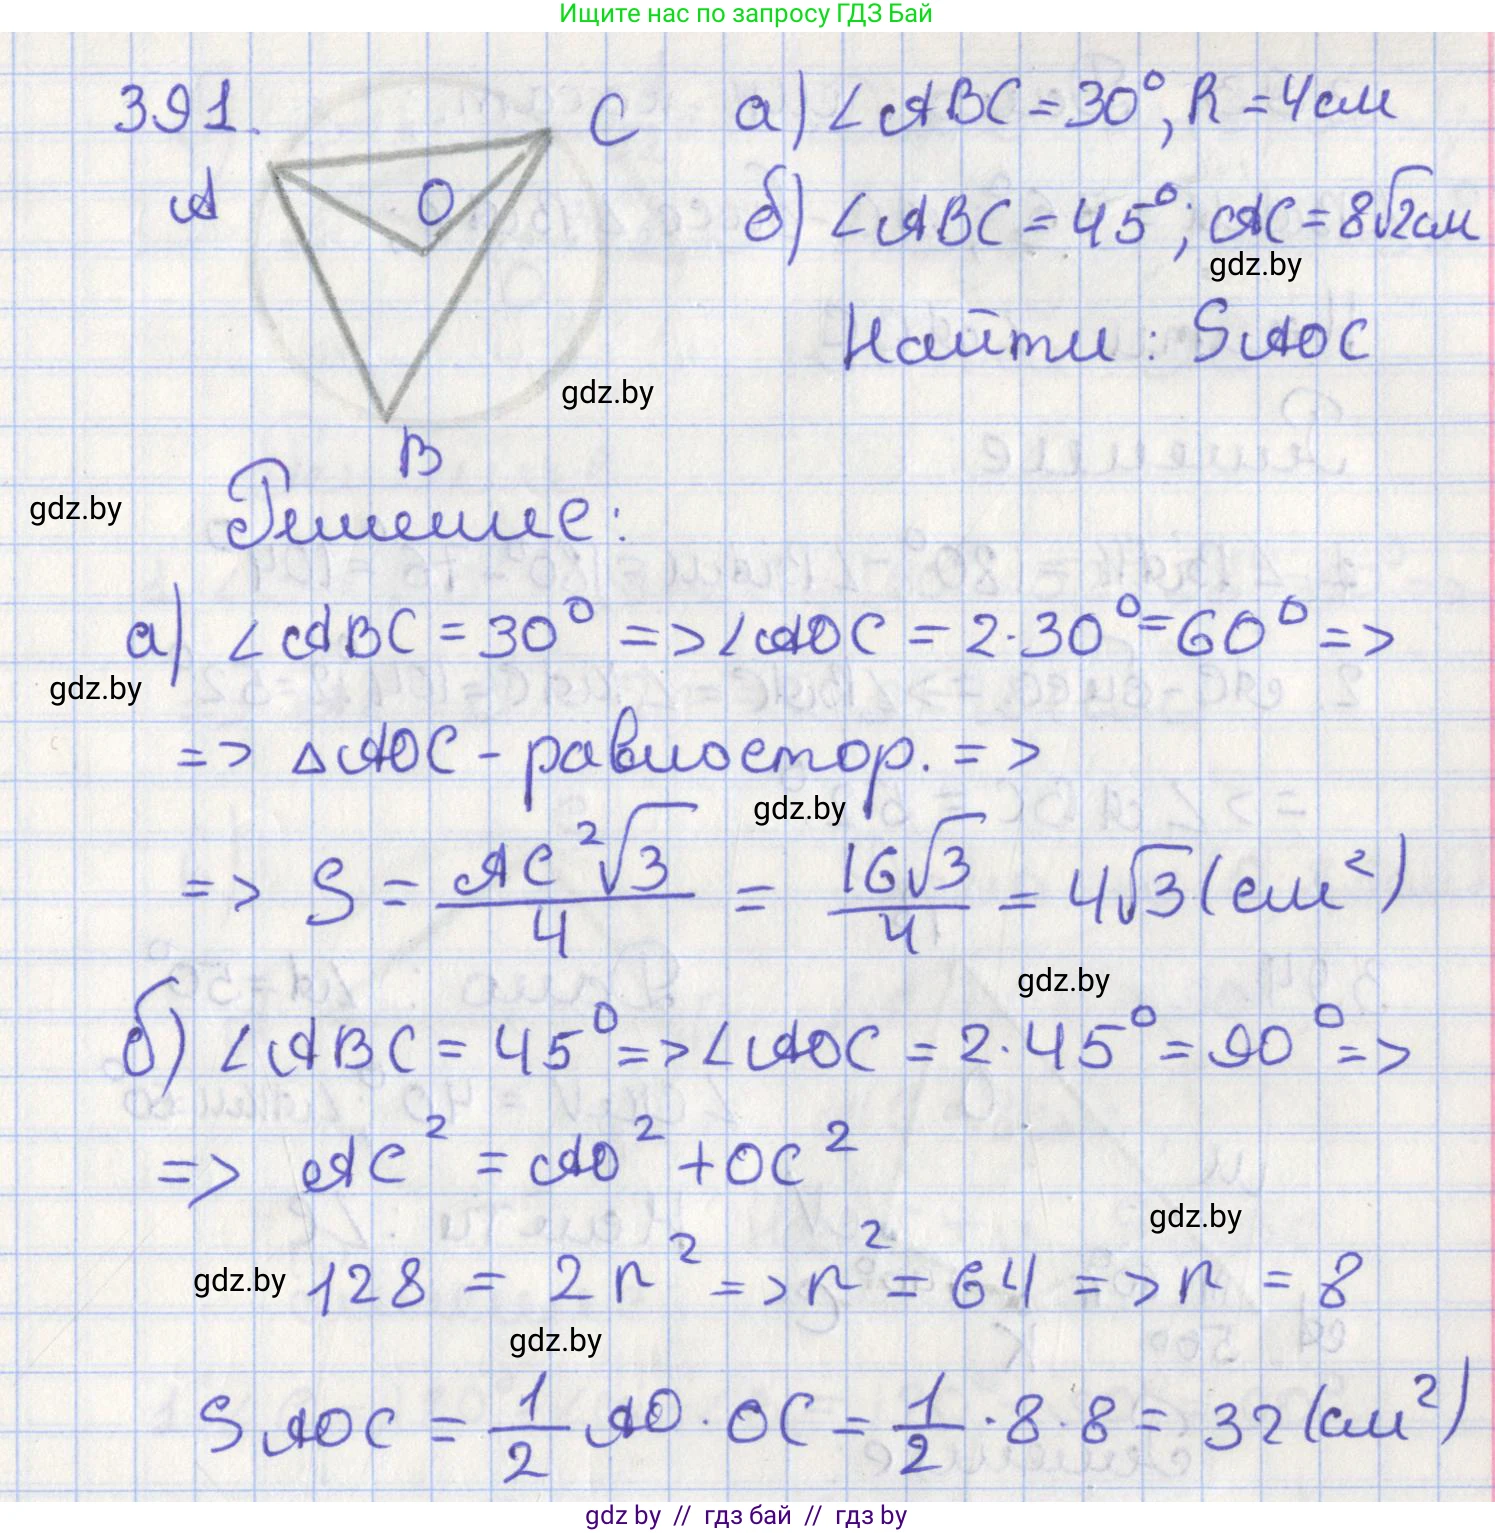 Ищите нас по запросу ГДЗ Бай
391.
C
A
O
B
а) ∠ABC = 30°, R = 4см
б) ∠ABC = 45°; AC = 8√2см
gdz.by
Найти: SAOC
gdz.by
gdz.by
Решение:
а) ∠ABC = 30° => ∠AOC = 2·30° = 60° =>
gdz.by
=> △AOC - равностор. =>
gdz.by
=> S = AC²√3/4 = 16√3/4 = 4√3 (см²)
gdz.by
б) ∠ABC = 45° => ∠AOC = 2·45° = 90° =>
=> AC² = AO² + OC²
gdz.by
gdz.by
128 = 2r² => r² = 64 => r = 8
gdz.by
SAOC = 1/2 AO · OC = 1/2 · 8 · 8 = 32 (см²)
gdz by // гдз бай // гдз by